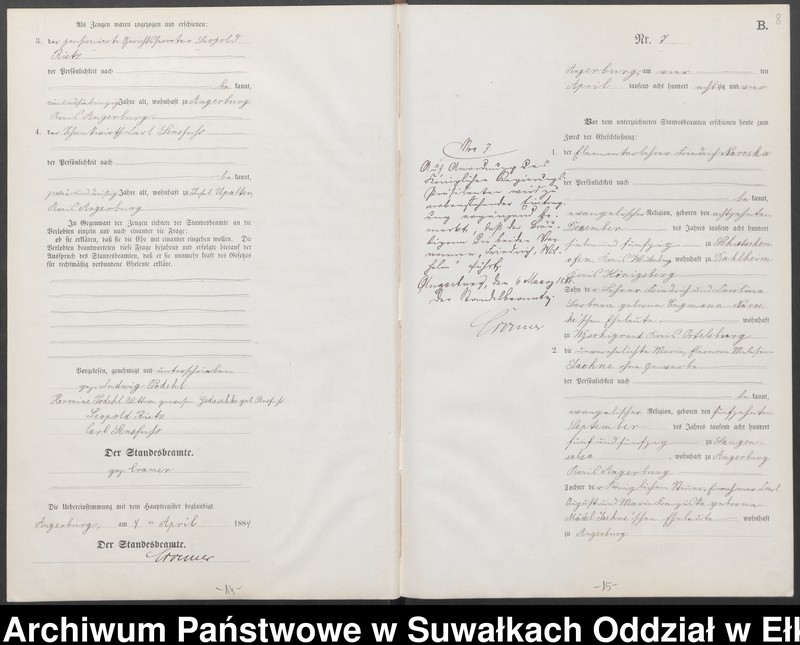 Als Zeugen waren zugezogen und erschienen:
3. der pensionirte Gerichtssecretär Leopold
Rietz
der Persönlichkeit nach
be kannt,
Jahre alt, wohnhaft zu Angerburg
Kreis Angerburg
4. der Schankwirth Carl Senffuss
der Persönlichkeit nach
be kannt,
Jahre alt, wohnhaft zu Upalten
Kreis Angerburg
In Gegenwart der Zeugen richtete der Standesbeamte an die
Verlobten einzeln und nach einander die Frage:
ob sie erklären, daß sie die Ehe mit einander eingehen wollen. Die
Verlobten beantworteten diese Frage bejahend und erfolgte hierauf der
Ausspruch des Standesbeamten, daß er sie nunmehr kraft des Gesetzes
für rechtmäßig verbundene Eheleute erkläre.
Vorgelesen, genehmigt und unterschrieben
gez. Ludwig Podehl
Hermine Podehl Wittwe gewesene geb. Senffuss
Leopold Rietz
Carl Senffuss
Der Standesbeamte.
gez. Cramer
Die Uebereinstimmung mit dem Hauptregister beglaubigt
Angerburg, am 4ten April 1884
Der Standesbeamte.
Cramer
-14-
B.
8
Nr. 7
Angerburg, am vier ten
April tausend acht hundert achtzig und vier
Vor dem unterzeichneten Standesbeamten erschienen heute zum
Zweck der Eheschließung:
1. der Elementarlehrer Friedrich Naroska
der Persönlichkeit nach
be kannt,
evangelischer Religion, geboren den achtzehnten
Dezember des Jahres tausend acht hundert
sieben und fünfzig zu
Kreis wohnhaft zu Kahlheim
Kreis Königsberg
Sohn der Lehrer Friedrich und
Barbara geborene Naros-
ka'schen Eheleute wohnhaft
zu Kreis Ortelsburg
2. die unverehelichte Marie, Eleonore
Jachne ohne Gewerbe
der Persönlichkeit nach
be kannt,
evangelischer Religion, geboren den fünfzehnten
September des Jahres tausend acht hundert
fünf und fünfzig zu Langen-
salza, wohnhaft zu Angerburg
Kreis Angerburg
Tochter der Königlichen Steuer-Einnehmer Carl
August und Marie Auguste geborene
Jachne'schen Eheleute wohnhaft
zu Angerburg
Nro 7
Auf Anordnung des
Königlichen Regierungs-
Präsidenten wird zu
nebenstehender Eintra-
gung ergänzend be-
merkt, daß der Bräu-
tigam die beiden Vor-
namen "Friedrich, Wil-
helm" führt.
Angerburg, den 6 März
Der Standesbeamte.
Cramer
-15-
Archiwum Państwowe w Suwałkach Oddział w Eł